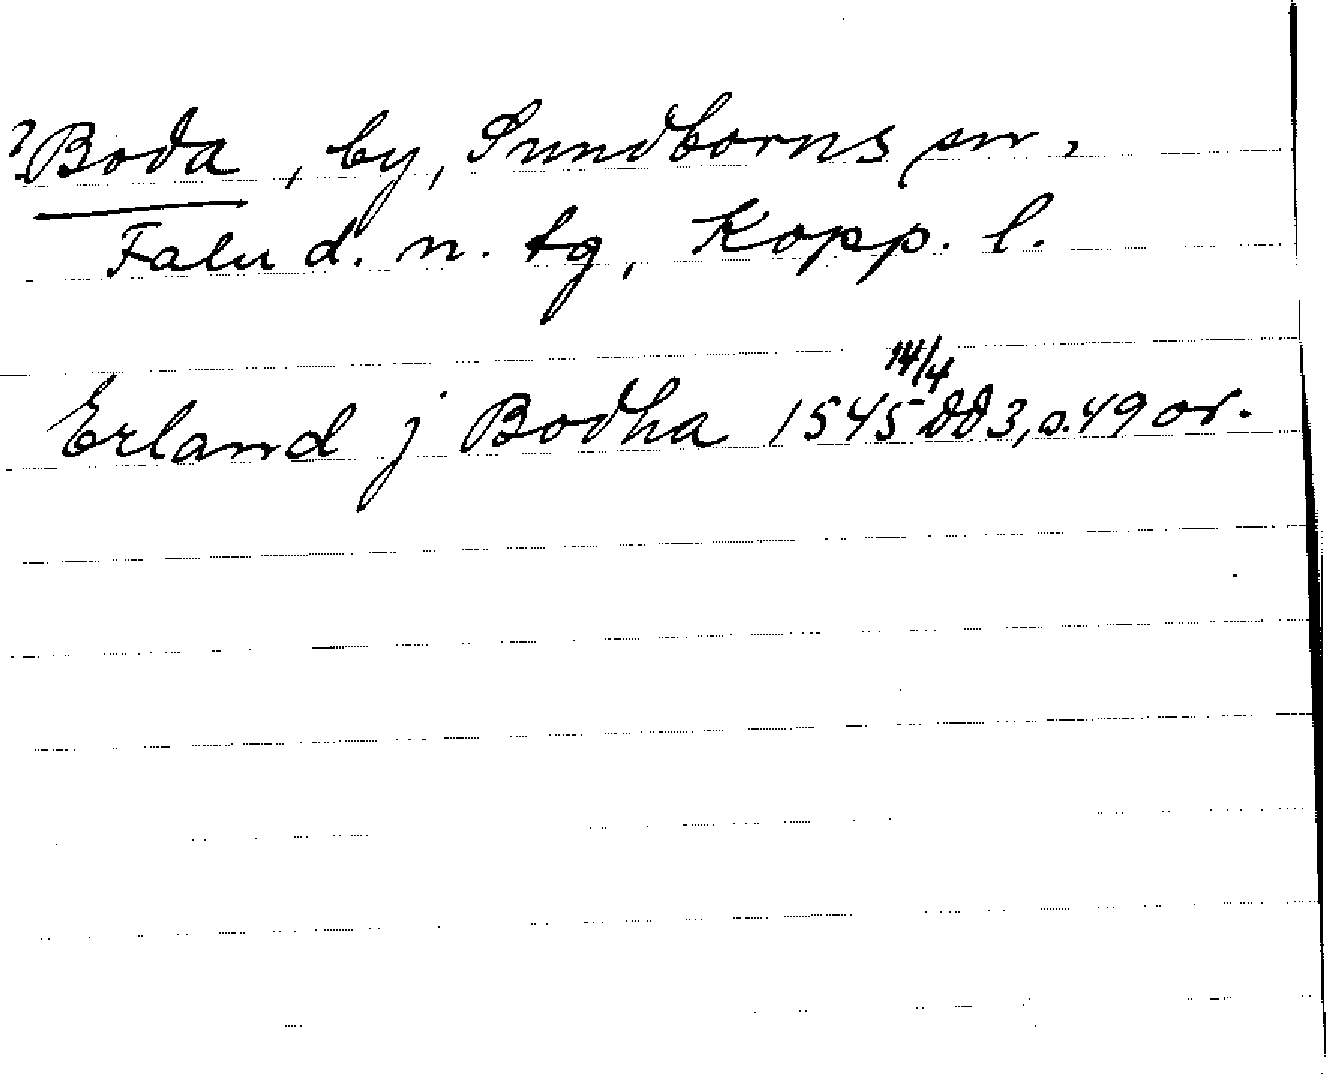 ?Boda, by, Sundborns sn,
Falu d. n. tg, Kopp. l.
Erland j Bodha 1545 14/4 DD3, s. 49 or.